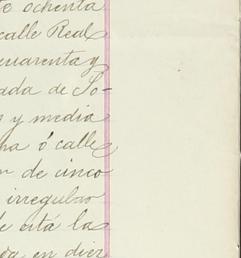 ochenta
calle Real
cuarenta y
ada de So-
s y media
ha ó calle
r de cinco
irregular
le está la
en diez